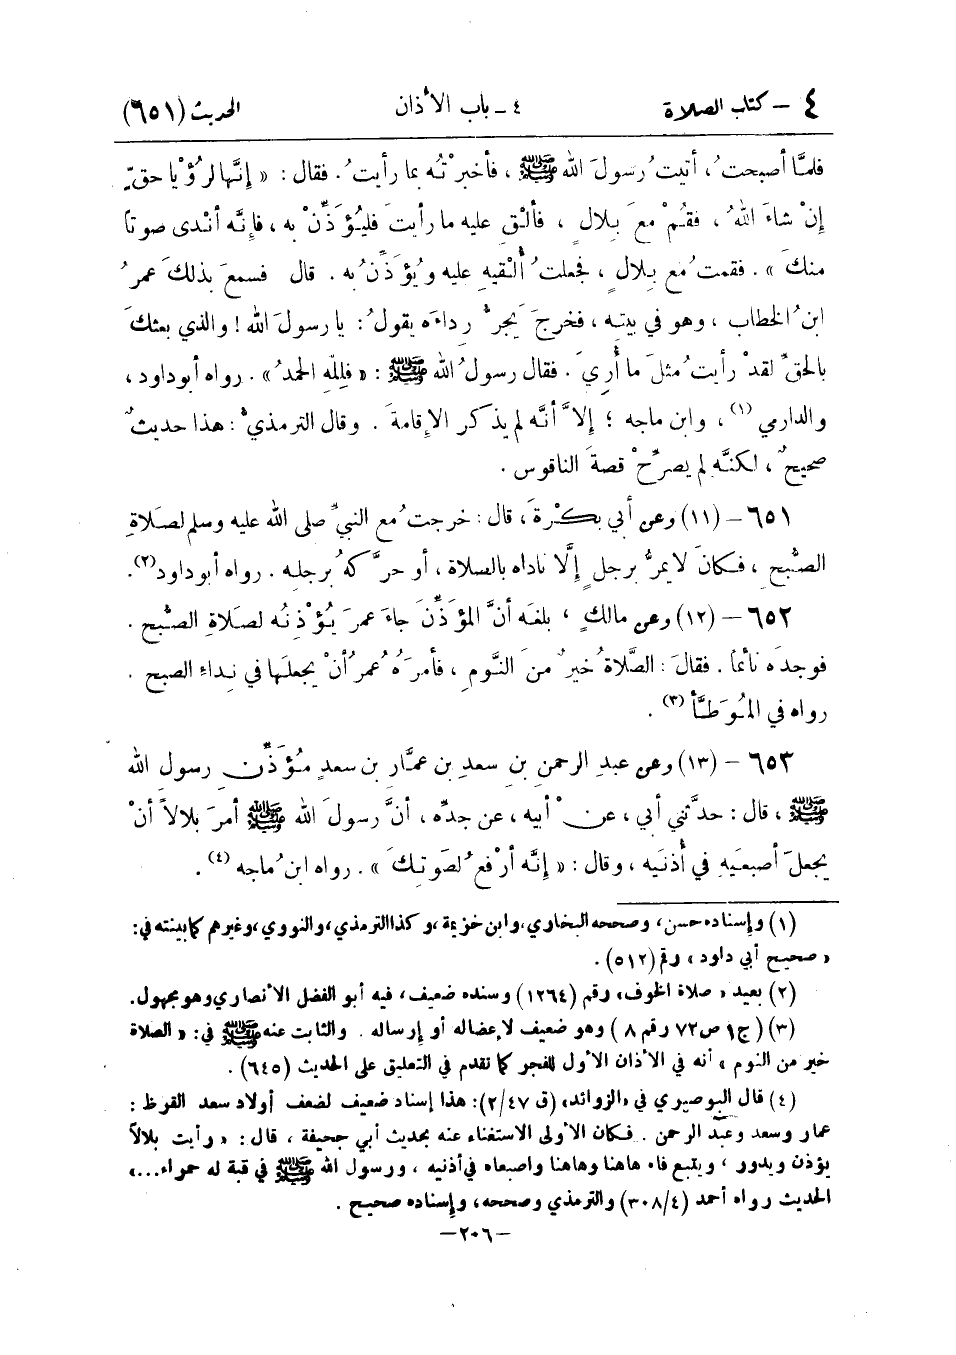 ٤ – كتاب الصلاة ٤ – باب الأذان الحديث (٦٥١)
فلمَّا أصبحتُ، أتيتُ رسولَ الله ﷺ، فأخبرْتُه بما رأيتُ. فقال: « إنَّها لرُؤْيا حقٍّ
إنْ شاءَ اللهُ، فقُمْ معَ بِلالٍ، فألْقِ عليه ما رأيتَ فليُؤَذِّنْ به، فإنَّه أنْدى صوتاً
منكَ ». فقمتُ معَ بِلالٍ، فجعلتُ أُلْقيهِ عليه ويُؤَذِّنُ به. قال فسمعَ بذلكَ عمرُ
ابنُ الخطاب، وهو في بيتِه، فخرجَ يجرُّ رِداءَه يقولُ: يا رسولَ الله! والذي بعثكَ
بالحقِّ لقدْ رأيتُ مثلَ ما أُرِيَ. فقال رسولُ الله ﷺ: « فلِلّهِ الحمدُ ». رواه أبو داود،
والدارمي (١)، وابن ماجه؛ إلاَّ أنَّه لم يذكر الإقامةَ. وقال الترمذيُّ: هذا حديثٌ
صحيحٌ، لكنَّه لم يصرِّحْ قصةَ الناقوس.
٦٥١ – (١١) وعن أبي بكْرةَ، قال: خرجتُ مع النبيِّ صلى الله عليه وسلم لصلاةِ
الصُّبحِ، فكانَ لا يمرُّ برجلٍ إلَّا ناداه بالصلاة، أو حرَّكهُ برجلِه. رواه أبو داود(٢).
٦٥٢ – (١٢) وعن مالكٍ، بلغه أنَّ المؤَذِّنَ جاءَ عمرَ يُؤْذِنُه لصلاةِ الصُّبح.
فوجدَه نائماً. فقالَ: الصَّلاةُ خيرٌ منَ النَّومِ، فأمرَهُ عمرُ أنْ يجعلَها في نِداءِ الصبح.
رواه في المُوَطَّأ (٣).
٦٥٣ – (١٣) وعن عبدِ الرحمنِ بنِ سعدِ بنِ عمَّارِ بنِ سعدٍ مُؤَذِّنِ رسولِ الله
ﷺ، قال: حدَّثني أبي، عن أبيه، عن جدِّه، أنَّ رسولَ الله ﷺ أمرَ بلالاً أنْ
يجعلَ أصبعَيهِ في أُذنَيه، وقال: « إنَّه أرْفعُ لصَوتِكَ ». رواه ابنُ ماجه (٤).
(١) وإسناده حسن، وصححه البخاري، وابن خزيمة، وكذا الترمذي، والنووي، وغيرهم كما بينته في:
« صحيح أبي داود » رقم (٥١٢).
(٢) بعيد « صلاة الخوف » رقم (١٢٦٤) وسنده ضعيف، فيه أبو الفضل الأنصاري وهو مجهول.
(٣) (ج١ ص٧٢ رقم ٨) وهو ضعيف لإعضاله أو إرساله. والثابت عنه ﷺ في: « الصلاة
خير من النوم » أنه في الأذان الأول للفجر كما تقدم في التعليق على الحديث (٦٤٥).
(٤) قال البوصيري في «الزوائد» (ق ٢/٤٧): هذا إسناد ضعيف لضعف أولاد سعد القرظ:
عمار وسعد وعبد الرحمن. فكان الأولى الاستغناء عنه بحديث أبي جحيفة، قال: « رأيت بلالاً
يؤذن ويدور، ويتبع فاه هاهنا وهاهنا واصبعاه في أذنيه، ورسول الله ﷺ في قبة له حمراء...»
الحديث رواه أحمد (٣٠٨/٤) والترمذي وصححه، وإسناده صحيح.
–٢٠٦–